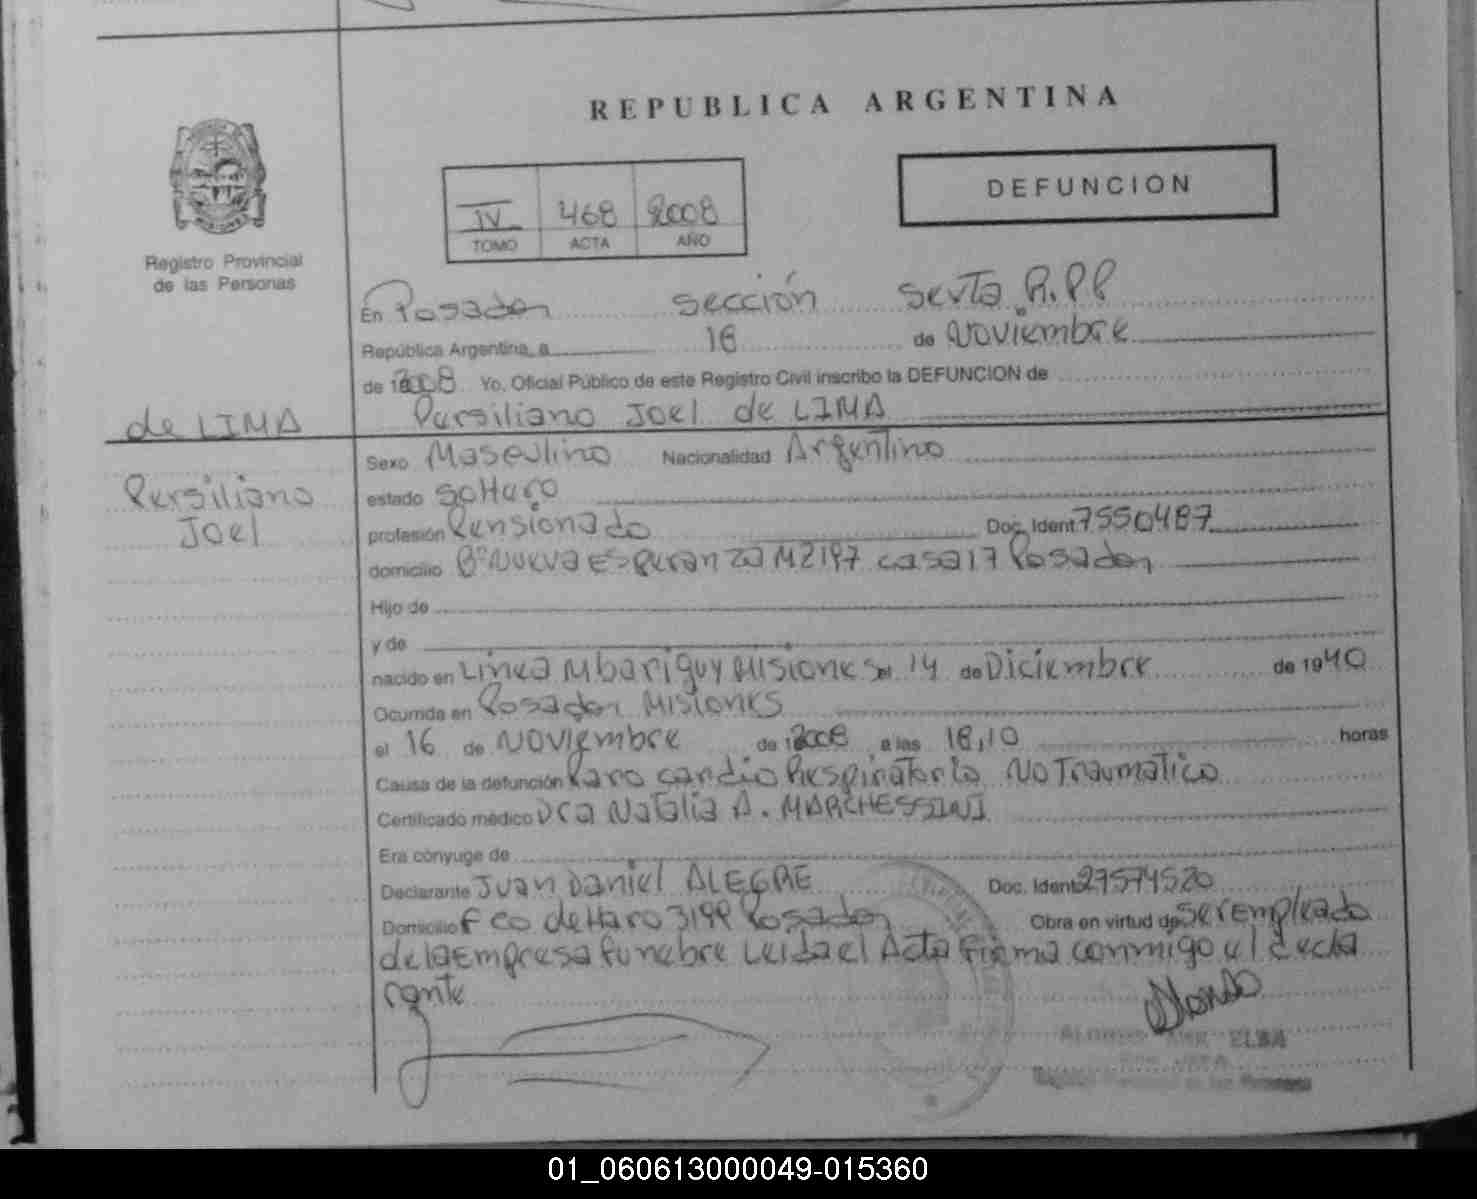 REPUBLICA ARGENTINA
DEFUNCION
IV 468 2008
TOMO ACTA AÑO
Registro Provincial
de las Personas
En Posadas sección Sexta R.PP
República Argentina, a 18 de Noviembre
de 2008 Yo, Oficial Público de este Registro Civil inscribo la DEFUNCION de
Persiliano Joel de LIMA
de LIMA
Persiliano
Joel
Sexo Masculino Nacionalidad Argentino
estado Soltero
profesión Pensionado Doc. Ident 7550487
domicilio Bº Nueva Esperanza MZ197 casa 17 Posadas
Hijo de
y de
nacido en Línea Mbariguy Misiones el 14 de Diciembre de 1940
Ocurrida en Posadas Misiones
el 16 de Noviembre de 2008 a las 18,10 horas
Causa de la defunción Paro cardio Respiratorio No Traumatico
Certificado médico Dra Natalia A. MARCHESSINI
Era cónyuge de
Declarante Juan Daniel ALEGRE Doc. Ident 27574520
Domicilio Fco de Haro 3199 Posadas Obra en virtud de ser empleado
de la Empresa funebre Leida el Acta firma conmigo el decla
rante
ELBA
01_060613000049-015360